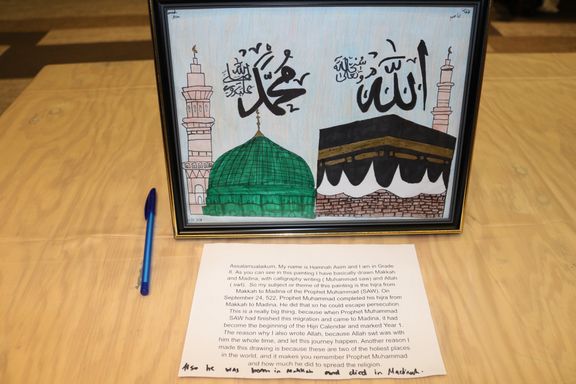 محمد
صلى الله عليه وسلم
الله
سبحانه وتعالى
Assalamualaikum, My name is Hamnah Asim and I am in Grade
8. As you can see in this painting I have basically drawn Makkah
and Madina, with calligraphy writing ( Muhammad saw) and Allah
( swt). So my subject or theme of this painting is the hijra from
Makkah to Madina of the Prophet Muhammad (SAW). On
September 24, 522, Prophet Muhammad completed his hijra from
Makkah to Madina. He did that so he could escape persecution.
This is a really big thing, because when Prophet Muhammad
SAW had finished this migration and came to Madina, it had
become the beginning of the Hijri Calendar and marked Year 1.
The reason why I also wrote Allah, because Allah swt was with
him the whole time, and let this journey happen. Another reason I
made this drawing is because these are two of the holiest places
in the world, and it makes you remember Prophet Muhammad
and how much he did to spread the religion.
Also he was born in Makkah and died in Madinah.